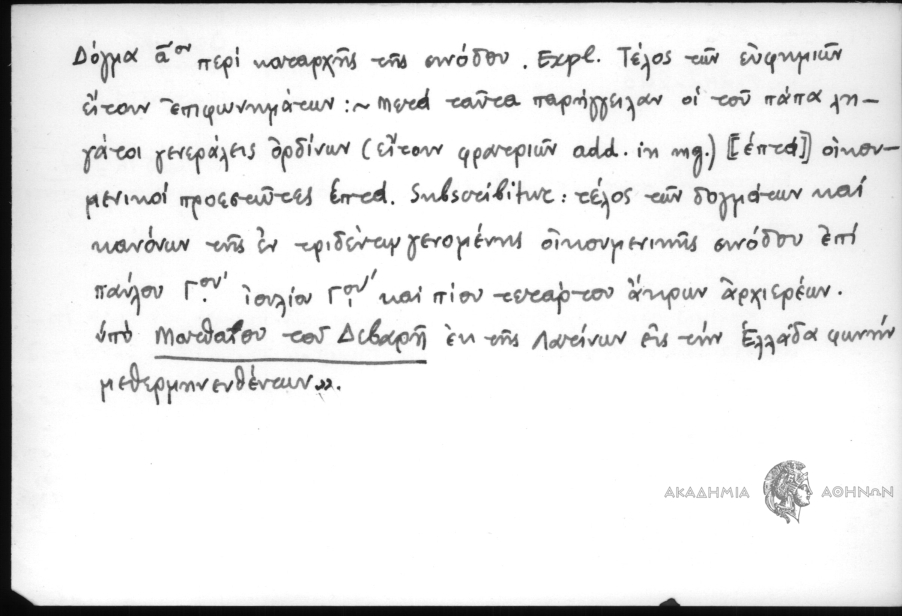 Δόγμα ᾶον περί καταρχῆς τῆς συνόδου. Expl. Τέλος τῶν εὐφημιῶν
εἴτουν ἐπιφωνημάτων :~ Μετά ταῦτα παρήγγειλαν οἱ τοῦ πάπα λη-
γάτοι γενεράλεις ὀρδίνων (εἴτουν φρατεριῶν add. in mg.) [ἑπτά] οἰκου-
μενικοί προεστῶτες ἑπτά. Subscribitur: τέλος τῶν δογμάτων καί
κανόνων τῆς ἐν τριδέντῳ γενομένης οἰκουμενικῆς συνόδου ἐπί
παύλου Γ.ου ἰουλίου Γ.ου καί πίου τετάρτου ἄκρων ἀρχιερέων.
ὑπό Ματθαίου τοῦ Δεβαρῆ ἐκ τῆς Λατίνων εἰς τήν Ἑλλάδα φωνήν
μεθερμηνευθέντων».
ΑΚΑΔΗΜΙΑ ΑΘΗΝΩΝ